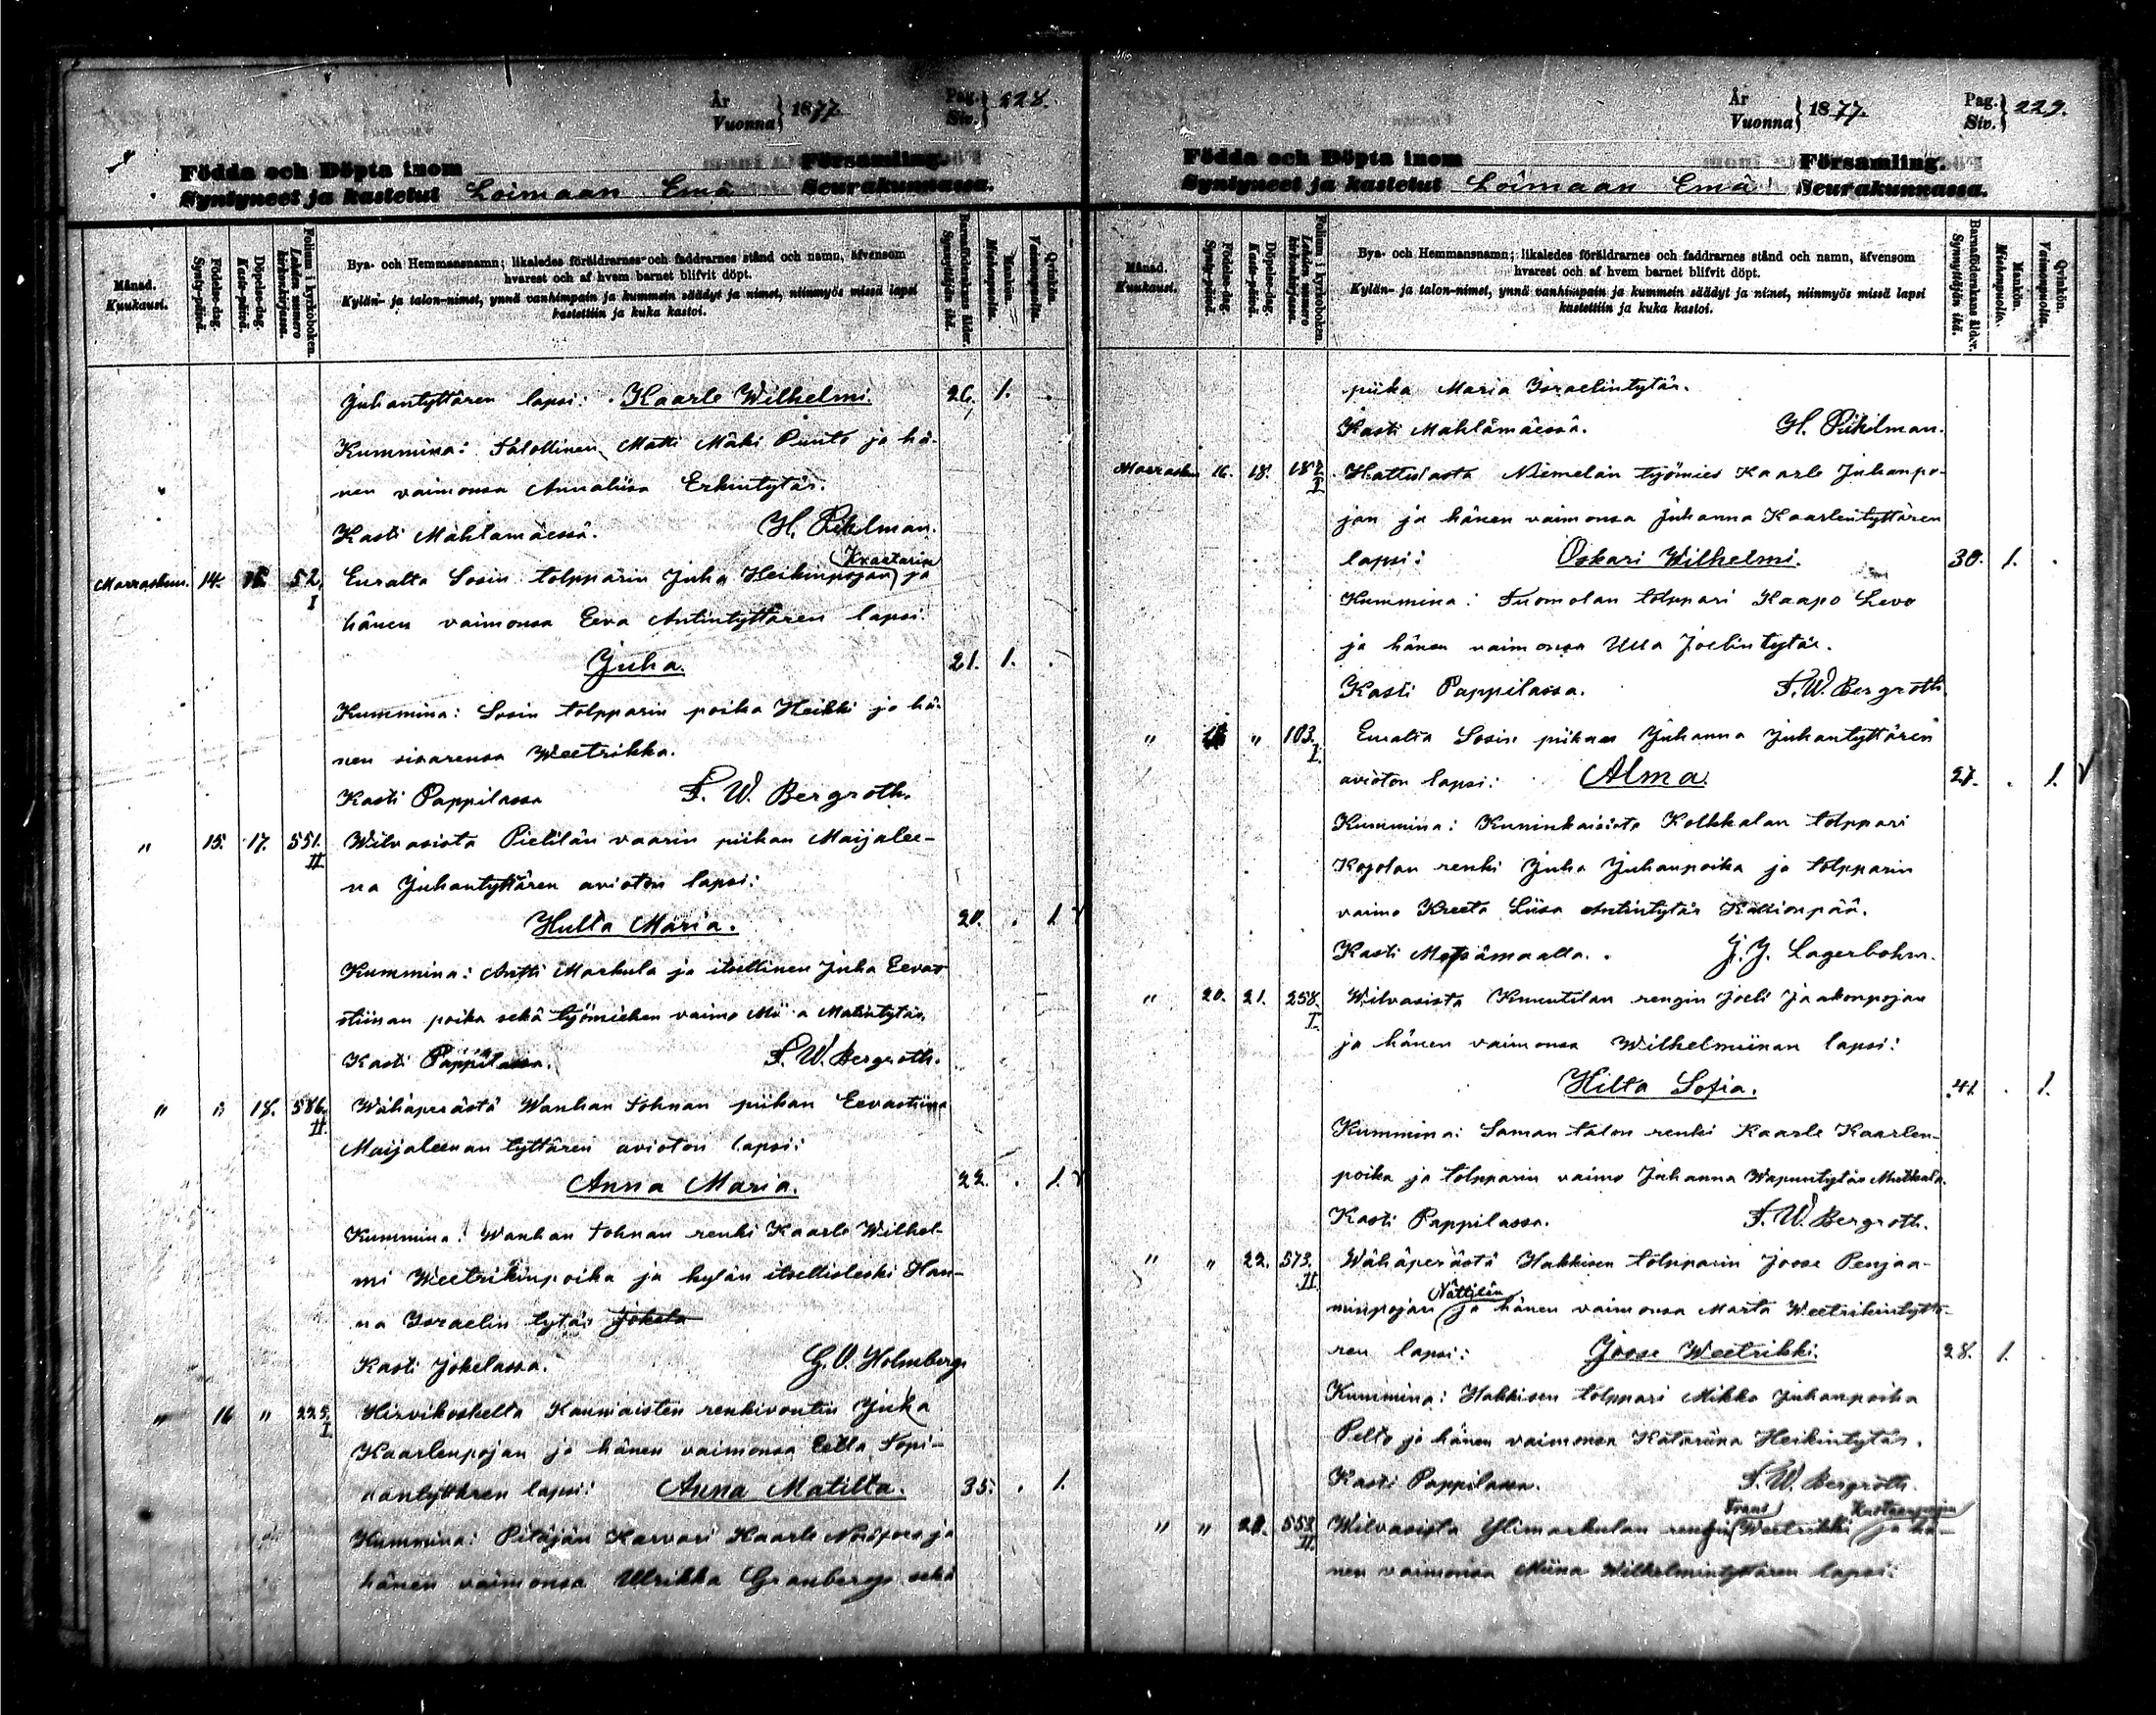 År
Vuonna } 1877.
Pag.
Siv. } 228.
Födda och Döpta inom Församling.
Syntyneet ja kastetut Loimaan Emä Seurakunnassa.
Månad.
Kuukausi.
Födelse-dag.
Synty-päivä.
Döpelse-dag.
Kaste-päivä.
Folium i kyrkoboken.
Lehden numero kirkonkirjassa.
Bya- och Hemmansnamn; likaledes föräldrarnes och faddrarnes stånd och namn, äfvensom
hvarest och af hvem barnet blifvit döpt.
Kylän- ja talon-nimet, ynnä vanhimpain ja kummein säädyt ja nimet, niinmyös missä lapsi
kastettiin ja kuka kastoi.
Barnaföderskans ålder.
Synnyttäjän ikä.
Mankön.
Miehenpuolia.
Qvinkön.
Vaimonpuolia.
Juhantyttären lapsi: Kaarle Wilhelmi. 26. 1.
Kummina: Talollinen Matti Mäki Punto ja hä-
nen vaimonsa Annaliisa Erkintytär.
Kasti Mahlamäessä. H. Pihlman.
Kraatarin
Marraskuu. 14. 52. I Euralta Sosin tolpparin Juha Heikinpojan ja
hänen vaimonsa Eeva Antintyttären lapsi:
Juha. 21. 1. .
Kummina: Sosin tolpparin poika Heikki ja hä-
nen sisarensa Weetrikka.
Kasti Pappilassa F. W. Bergroth.
" 15. 17. 551. II Wilvasista Pietilän vaarin piikan Maijalee-
na Juhantyttären avioton lapsi:
Hulta Maria. 20. . 1. V
Kummina: Antti Markula ja itsellinen Juha Eevas-
stiinan poika sekä työmiehen vaimo Matintytär.
Kasti Pappilassa. F. W. Bergroth.
" " 18. 586. II. Wähäperästä Wanhan Tohnan piikan Eevastiina
Maijaleenan tyttären avioton lapsi:
Anna Maria. 22. . 1. V
Kummina: Wanhan Tohnan renki Kaarle Wilhel-
mi Weetrikinpoika ja kylän itsellisleski Han-
na Israelin tytär Jokela
Kasti Jokelassa. G. V. Holmberg
" 16 " 225. I Hirvikoskelta Kauniaisten renkivoutin Juha
Kaarlenpojan ja hänen vaimonsa Eella Sopi-
antyttären lapsi: Anna Matilta. 35. . 1.
Kummina: Pitäjän Karvari Kaarle ja
hänen vaimonsa Ulrikka Granberg sekä
År
Vuonna } 1877.
Pag.
Siv. } 229.
Födda och Döpta inom Församling.
Syntyneet ja kastetut Loimaan Emä Seurakunnassa.
Månad.
Kuukausi.
Födelse-dag.
Synty-päivä.
Döpelse-dag.
Kaste-päivä.
Folium i kyrkoboken.
Lehden numero kirkonkirjassa.
Bya- och Hemmansnamn; likaledes föräldrarnes och faddrarnes stånd och namn, äfvensom
hvarest och af hvem barnet blifvit döpt.
Kylän- ja talon-nimet, ynnä vanhimpain ja kummein säädyt ja nimet, niinmyös missä lapsi
kastettiin ja kuka kastoi.
Barnaföderskans ålder.
Synnyttäjän ikä.
Mankön.
Miehenpuolia.
Qvinkön.
Vaimonpuolia.
piika Maria Israelintytär.
Kasti Mahlamäessä. H. Pihlman.
Marraskuu 16. 18. Hattulasta Niemelän työmies Kaarle Juhanpo-
jan ja hänen vaimonsa Juhanna Kaarlentyttären
lapsi: Oskari Wilhelmi. 30. 1. .
Kummina: Tuomolan tolppari Kaapo Levo
ja hänen vaimonsa Ulla Joelintytär.
Kasti Pappilassa. F. W. Bergroth.
" " 103. I. Euralta Sosin piikan Juhanna Juhantyttären
avioton lapsi: Alma. 27. . 1. V
Kummina: Kuninkaisista Kolkkalan tolppari
Kojolan renki Juha Juhanpoika ja tolpparin
vaimo Kreeta Liisa Antintytär Kallionpää.
Kasti Metsämaalla. J. J. Lagerbohm.
" 20. 21. 258. I. Wilvasista Knuutilan rengin Joeli Jaakonpojan
ja hänen vaimonsa Wilhelmiinan lapsi:
Hilta Sofia. 41. . 1.
Kummina: Saman talon renki Kaarle Kaarlen-
poika ja tolpparin vaimo Juhanna Wapuntytär
Kasti Pappilassa. F. W. Bergroth.
" " 22. 573. II Wähäperästä Hakkisen tolpparin Joose Penjaa-
Nättilin
minpojan ja hänen vaimonsa Marta Weetrikintyttä-
ren lapsi: Joose Weetrikki. 28. 1. .
Kummina: Hakkisen tolppari Mikko Juhanpoika
Pelto ja hänen vaimonsa Katariina Heikintytär.
Kasti Pappilassa. F. W. Bergroth.
Frans Kustaanpojan
" " 553. II. Wilvasista Ylimarkulan rengin Weetrikki ja hä-
nen vaimonsa Miina Wilhelmintyttären lapsi: